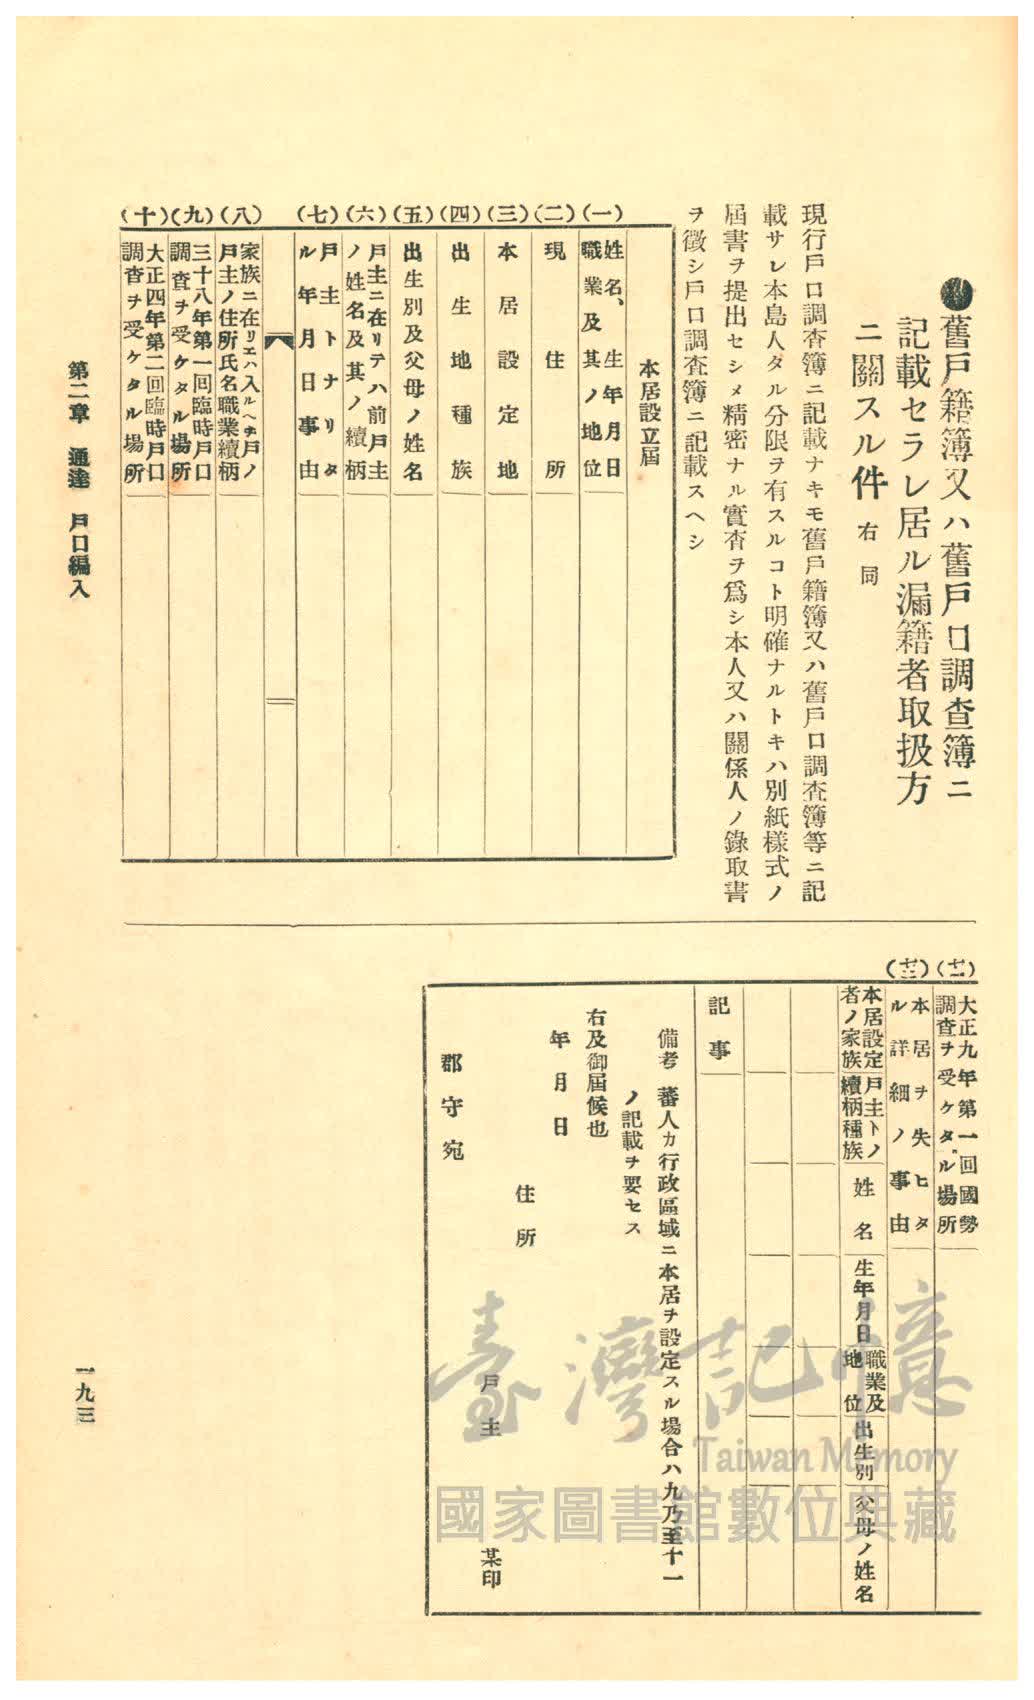 舊戶籍簿又ハ舊戶口調查簿ニ
記載セラレ居ル漏籍者取扱方
ニ關スル件 右同
現行戶口調查簿ニ記載ナキモ舊戶籍簿又ハ舊戶口調查簿等ニ記
載サレ本島人タル分限ヲ有スルコト明確ナルトキハ別紙樣式ノ
屆書ヲ提出セシメ精密ナル實査ヲ爲シ本人又ハ關係人ノ錄取書
ヲ徵シ戶口調查簿ニ記載スヘシ
本居設立屆
(一) 姓名、生年月日
職業及其ノ地位
(二) 現住所
(三) 本居設定地
(四) 出生地種族
(五) 出生別及父母ノ姓名
(六) 戶主ニ在リテハ前戶主
ノ姓名及其ノ續柄
(七) 戶主トナリタ
ル年月日事由
(八) 家族ニ在リエハ入ルヘキ戶ノ
戶主ノ住所氏名職業續柄
(九) 三十八年第一回臨時戶口
調査ヲ受ケタル場所
(十) 大正四年第二回臨時戶口
調査ヲ受ケタル場所
(十一) 大正九年第一回國勢
調查ヲ受ケタル場所
(十二) 本居ヲ失ヒタ
ル詳細ノ事由
本居設定
者ノ家族
戶主トノ
續柄種族
姓名
生年月日
職業及
地位
出生別
父母ノ姓名
記事
備考 蕃人カ行政區域ニ本居ヲ設定スル場合ハ九乃至十一
ノ記載ヲ要セス
右及御屆候也
年月日
住所
戶主 某印
郡守宛
第二章 通達 戶口編入
一九三
臺灣記憶
Taiwan Memory
國家圖書館數位典藏